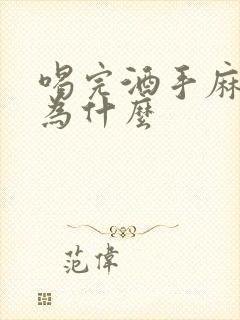 喝完酒手麻
為什麼
范偉